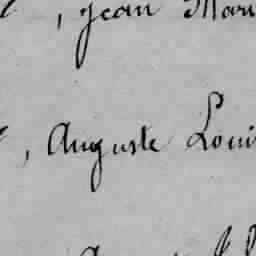 , Jean Mari
, Auguste Loui